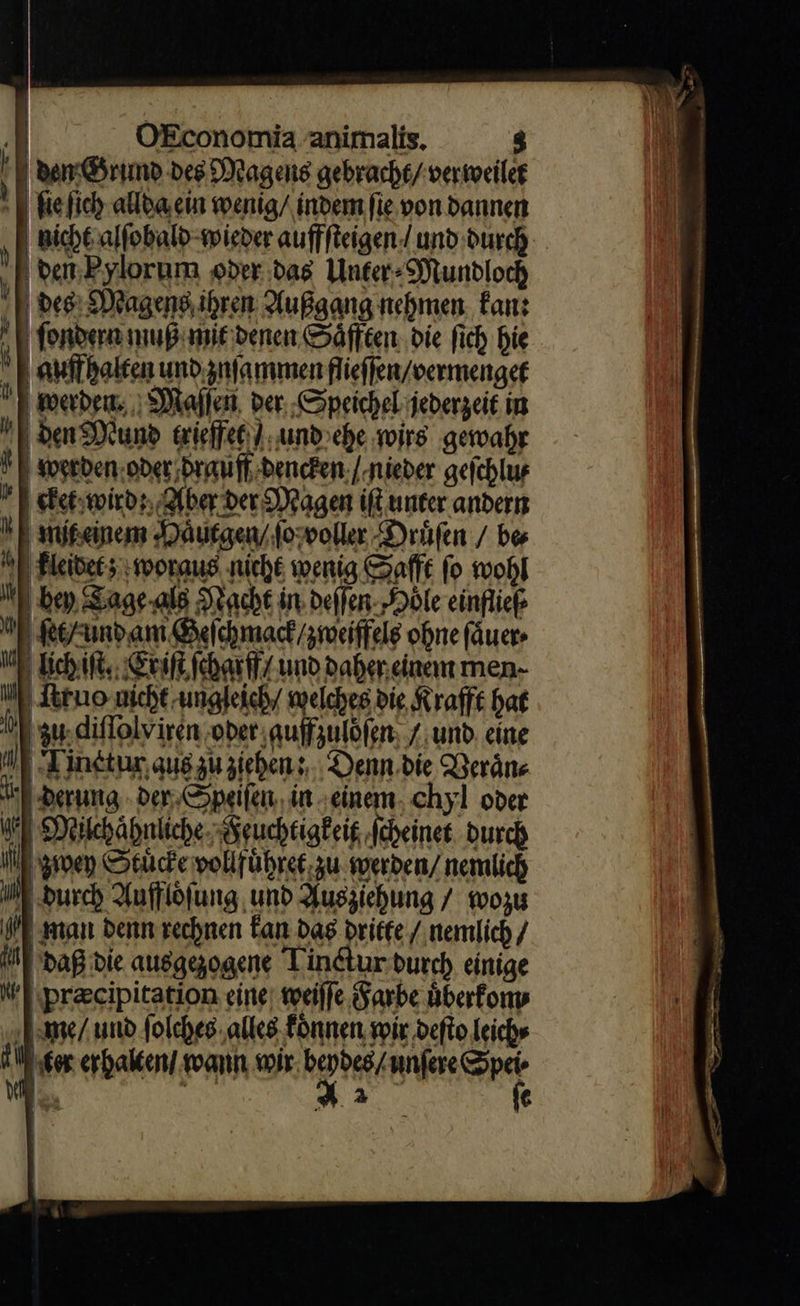 OEconomia animalis. 3
den Grund des Magens gebracht/ verweilet
ſie ſich allda ein wenig/ indem ſie von dannen
nicht alſobald wieder auffſteigen / und durch
den Pylorum oder das Unter-Mundloch
des Magens ihren Außgang nehmen kan:
ſondern muß mit denen Säfften die ſich hie
auffhalten und znſammen flieſſen/vermenget
werden. Maſſen der Speichel jederzeit in
den Mund trieffet / und ehe wirs gewahr
werden oder drauff dencken / nieder geſchlu-
cket wird: Aber der Magen iſt unter andern
mit einem Häutgen/ ſo voller Drüſen / be-
kleidet; woraus nicht wenig Safft ſo wohl
bey Tage als Nacht in deſſen Höle einflieſ-
ſet/ und am Geſchmack/zweiffels ohne ſäuer-
lich iſt. Er iſt ſcharff/ und daher einem men-
ſtruo nicht ungleich/ welches die Krafft hat
zu diſſolviren oder auffzulöſen / und eine
Tinctur aus zu ziehen: Denn die Verän-
derung der Speiſen in einem chyl oder
Milchähnliche Feuchtigkeit ſcheinet durch
zwey Stücke vollführet zu werden/ nemlich
durch Aufflöſung und Ausziehung / wozu
man denn rechnen kan das dritte / nemlich /
daß die ausgezogene Tinctur durch einige
præcipitation eine weiſſe Farbe überkom-
me/ und ſolches alles können wir deſto leich-
ter erhalten/ wann wir beydes/ unſere Spei-
A 2 ſe